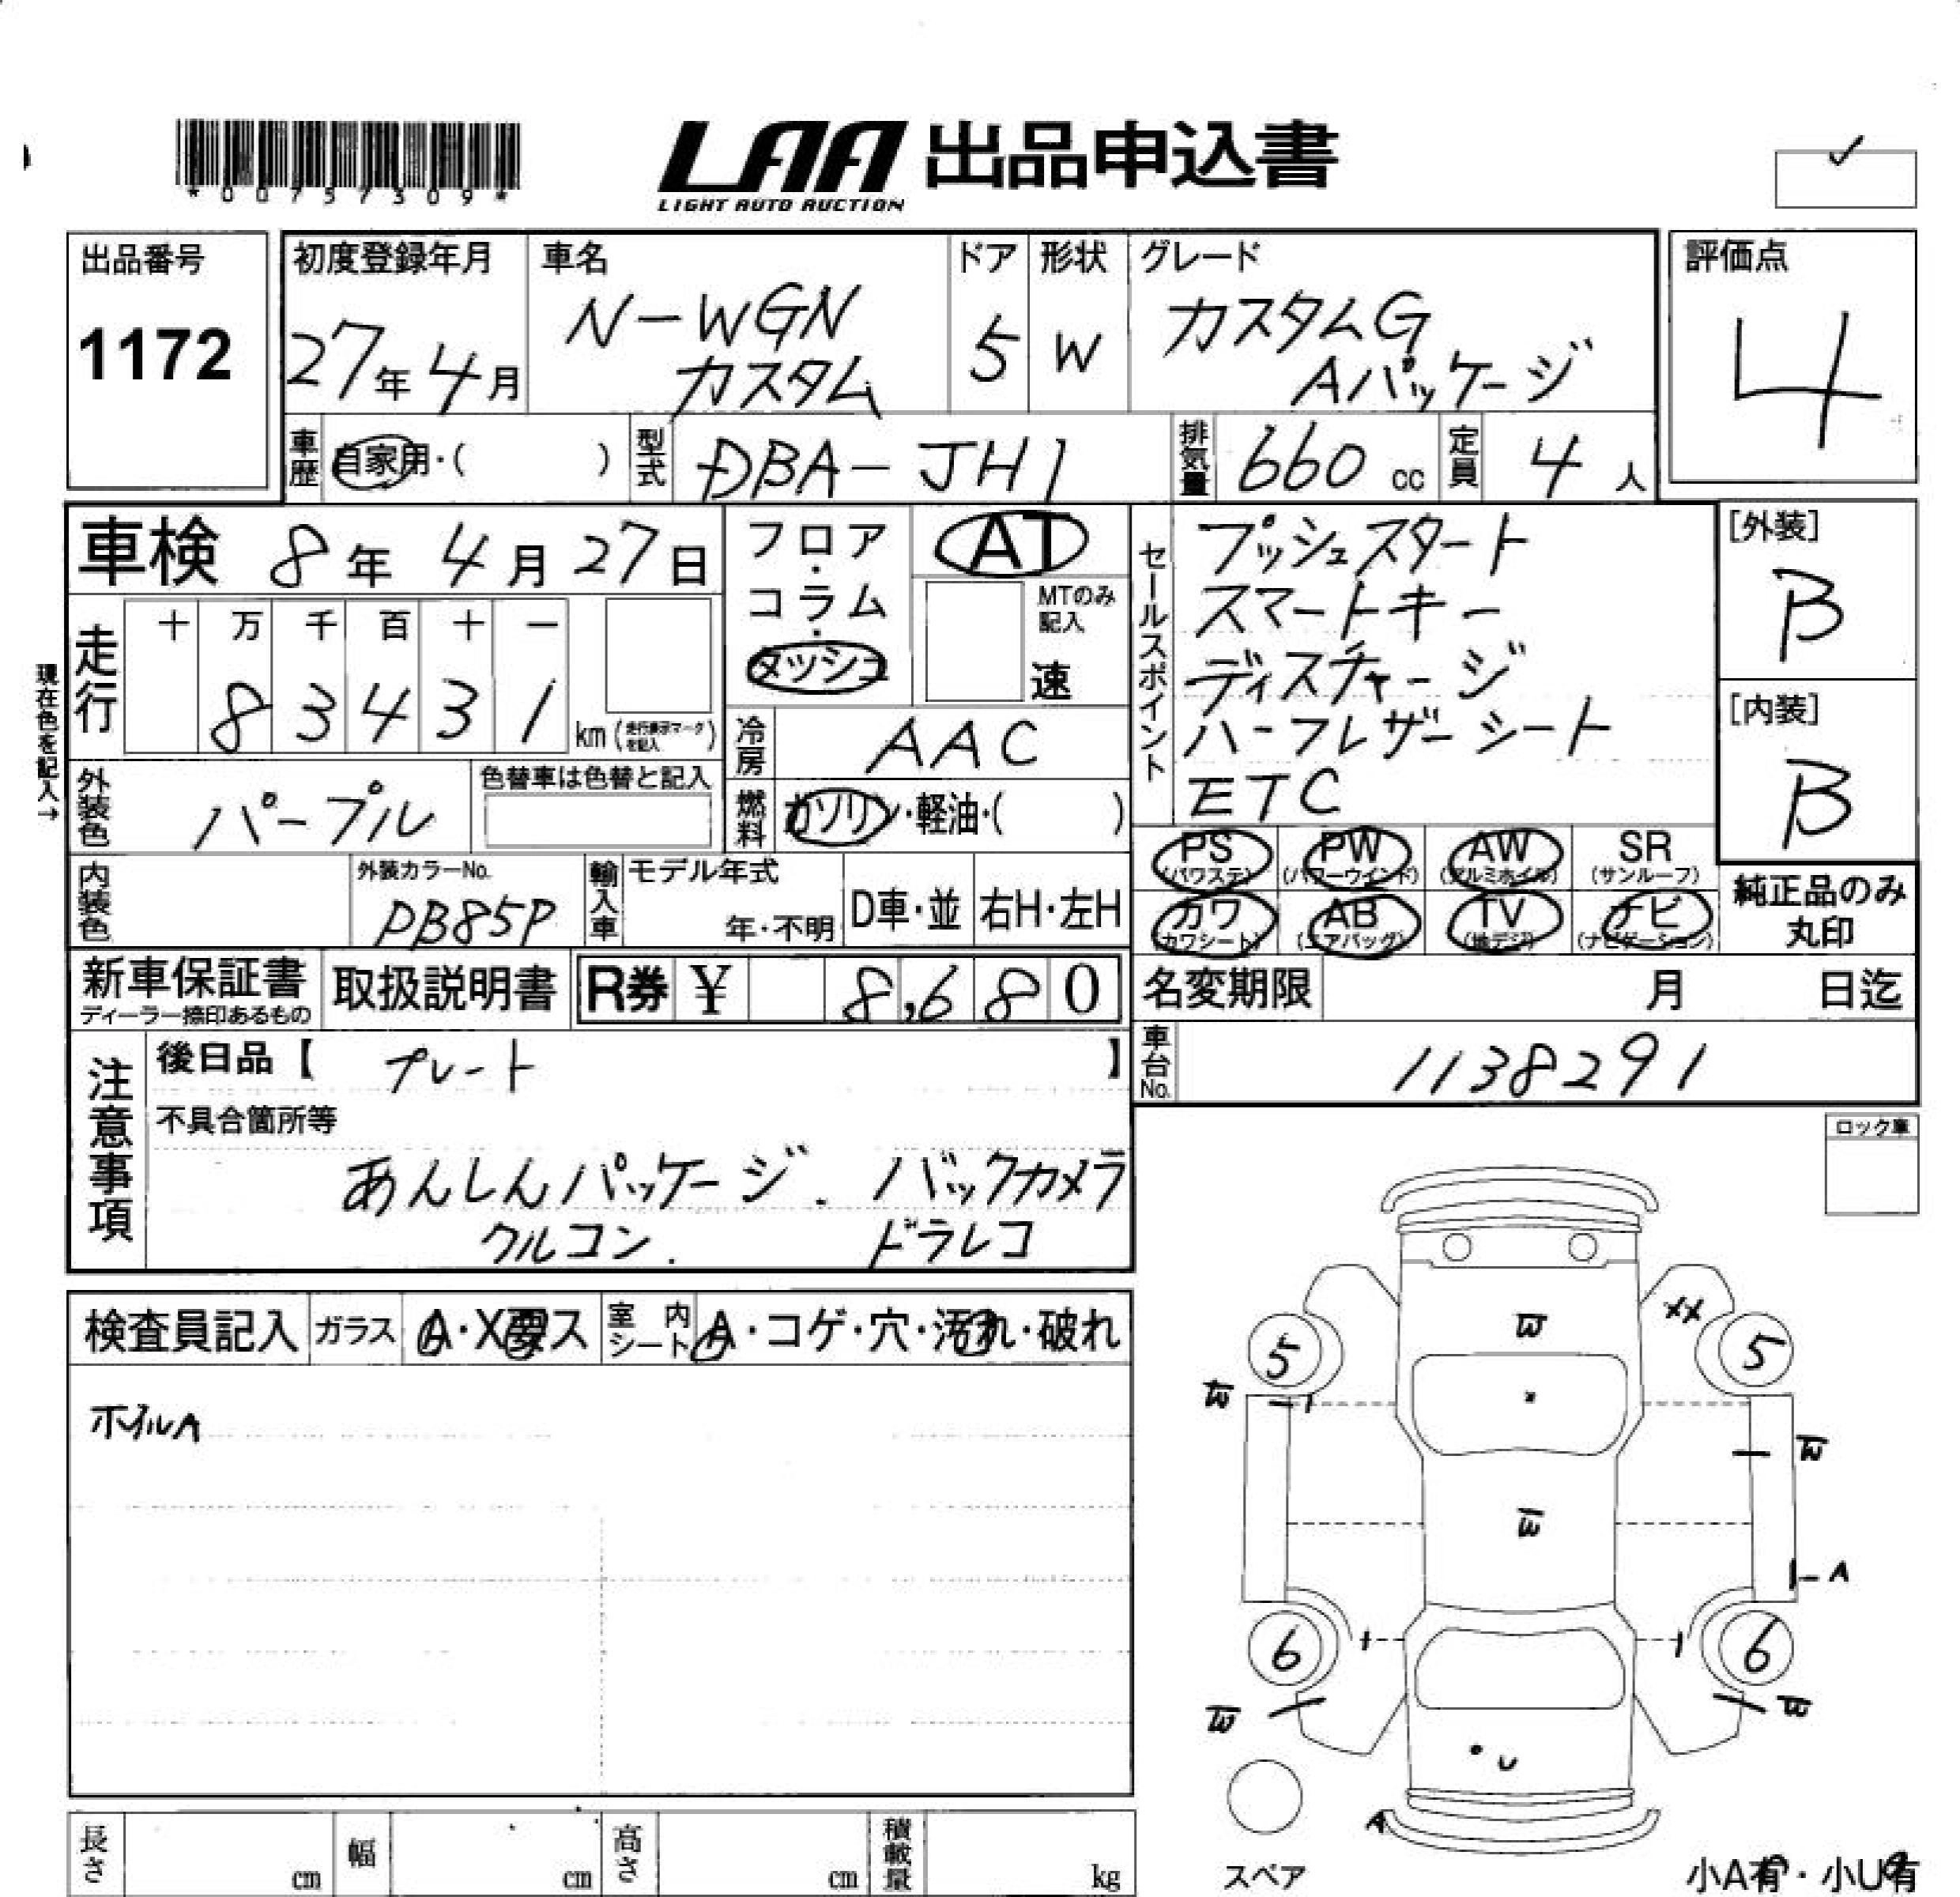 *00757309*
LAA 出品申込書
LIGHT AUTO AUCTION
出品番号
1172
初度登録年月
27年4月
車名
N-WGN
カスタム
ドア
5
形状
W
グレード
カスタムG
Aパッケージ
評価点
4
車歴 自家用・( )
型式 DBA-JH1
排気量 660 cc
定員 4 人
車検 8年 4月 27日
走行 十 万 千 百 十 一
8 3 4 3 1 km (走行表示マークを記入)
現在色を記入→
外装色 パープル
色替車は色替と記入
内装色
外装カラーNo.
PB85P
輸入車 モデル年式
年・不明
D車・並 右H・左H
フロア・コラム・ダッシュ
AT
MTのみ記入
速
冷房 AAC
燃料 ガソリン・軽油・( )
セールスポイント
プッシュスタート
スマートキー
ディスチャージ
ハーフレザーシート
ETC
[外装]
B
[内装]
B
PS (パワステ) PW (パワーウインド) AW (アルミホイル) SR (サンルーフ)
カワ (カワシート) AB (エアバッグ) TV (地デジ) ナビ (ナビゲーション)
純正品のみ
丸印
新車保証書
ディーラー捺印あるもの
取扱説明書
R券 ¥ 8,680
名変期限 月 日迄
車台No. 1138291
注意事項
後日品【 プレート 】
不具合箇所等
あんしんパッケージ. バックカメラ
クルコン. ドラレコ
ロック車
検査員記入 ガラス A・X要ス 室内シート A・コゲ・穴・汚れ・破れ
ホイルA
W
XX
5
5
W
W
W
A
6
6
W
W
U
A
スペア
小A有・小U有
長さ cm 幅 cm 高さ cm 積載量 kg